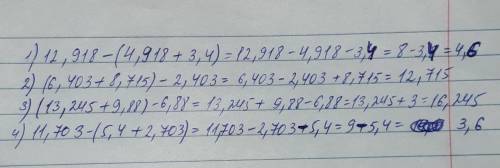 1) 12,918-(4,918+3,4)=12,918-4,918-3,4=8-3,4=4,6
2) (6,403+8,715)-2,403=6,403-2,403+8,715=12,715
3) (13,245+9,88)-6,88=13,245+9,88-6,88=13,245+3=16,245
4) 11,703-(5,4+2,703)=11,703-2,703-5,4=9-5,4= 3,6